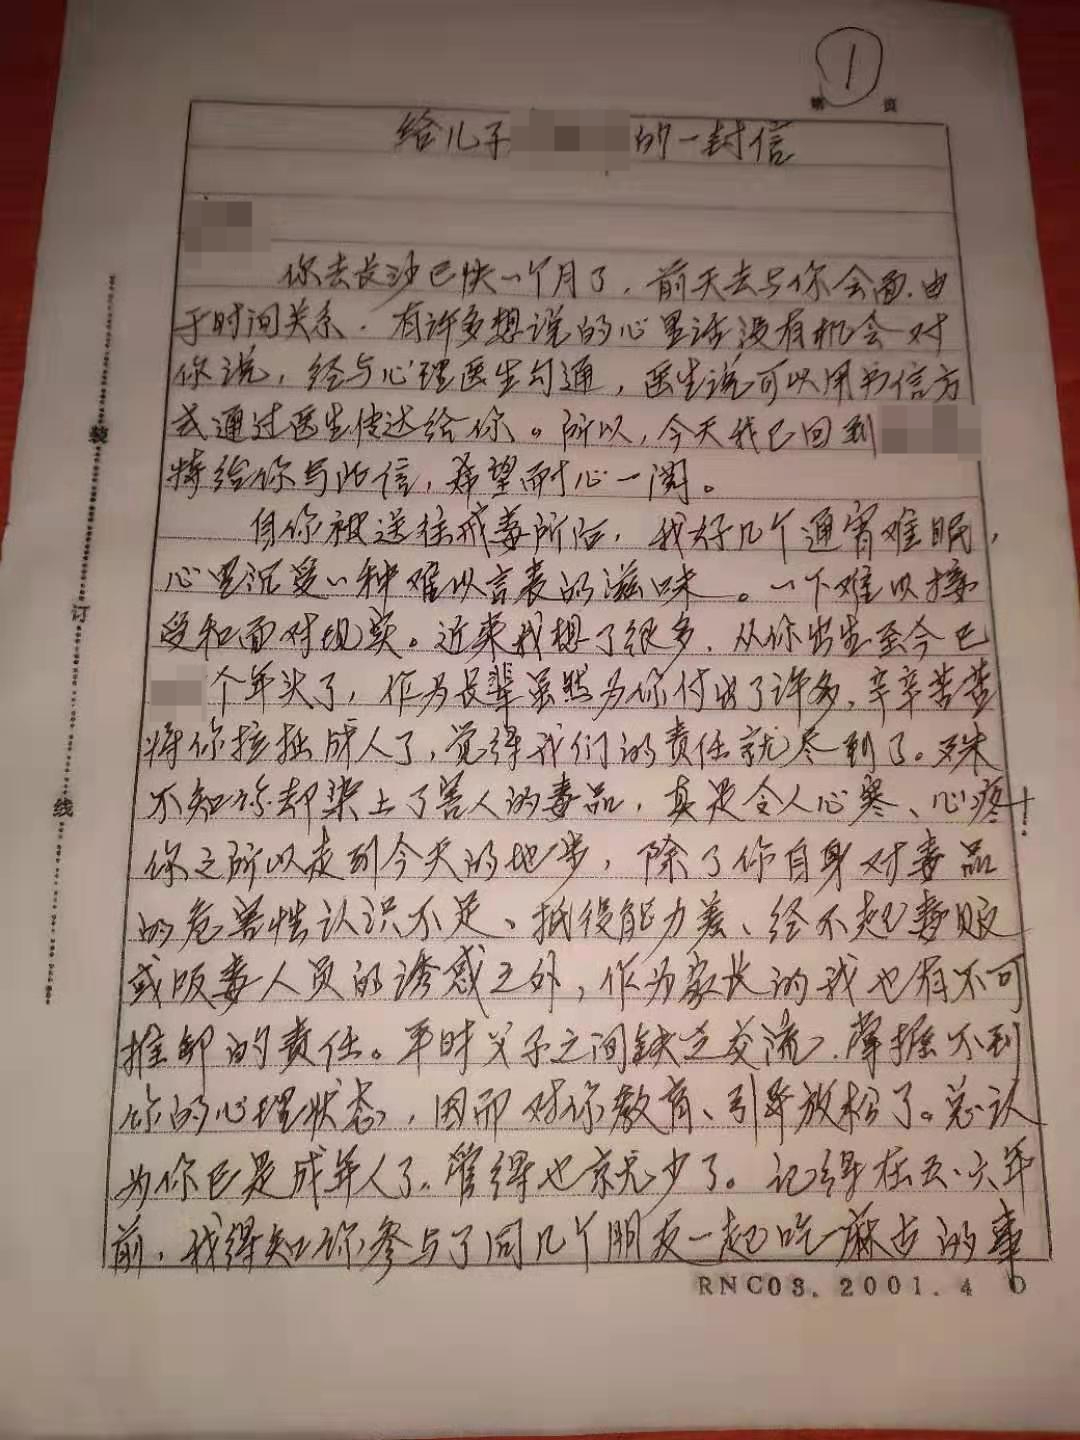 第1页
给儿子的一封信
你去长沙已快一个月了，前天去与你会面，由
于时间关系，有许多想说的心里话没有机会对
你说，经与心理医生勾通，医生说可以用书信方
式通过医生传达给你。所以，今天我已回到
特给你写此信，希望耐心一阅。
自你被送往戒毒所后，我好几个通宵难眠，
心里沉受一种难以言表的滋味。一下难以接
受和面对现实。近来我想了很多，从你出生至今已
个年头了，作为长辈虽然为你付出了许多，辛辛苦苦
将你拉扯成人了，觉得我们的责任就尽到了。殊
不知你却染上了害人的毒品，真是令人心寒、心疼！
你之所以走到今天的地步，除了你自身对毒品
的危害性认识不足、抵役能力差、经不起毒贩
或贩毒人员的诱惑之外，作为家长的我也有不可
推卸的责任。平时父子之间缺乏交流，掌握不到
你的心理状态，因而对你教育、引导放松了。总认
为你已是成年人了，管得也就少了。记得在五、六年
前，我得知你参与了同几个朋友一起吃麻古的事
装
订
线
RNC03.2001.4